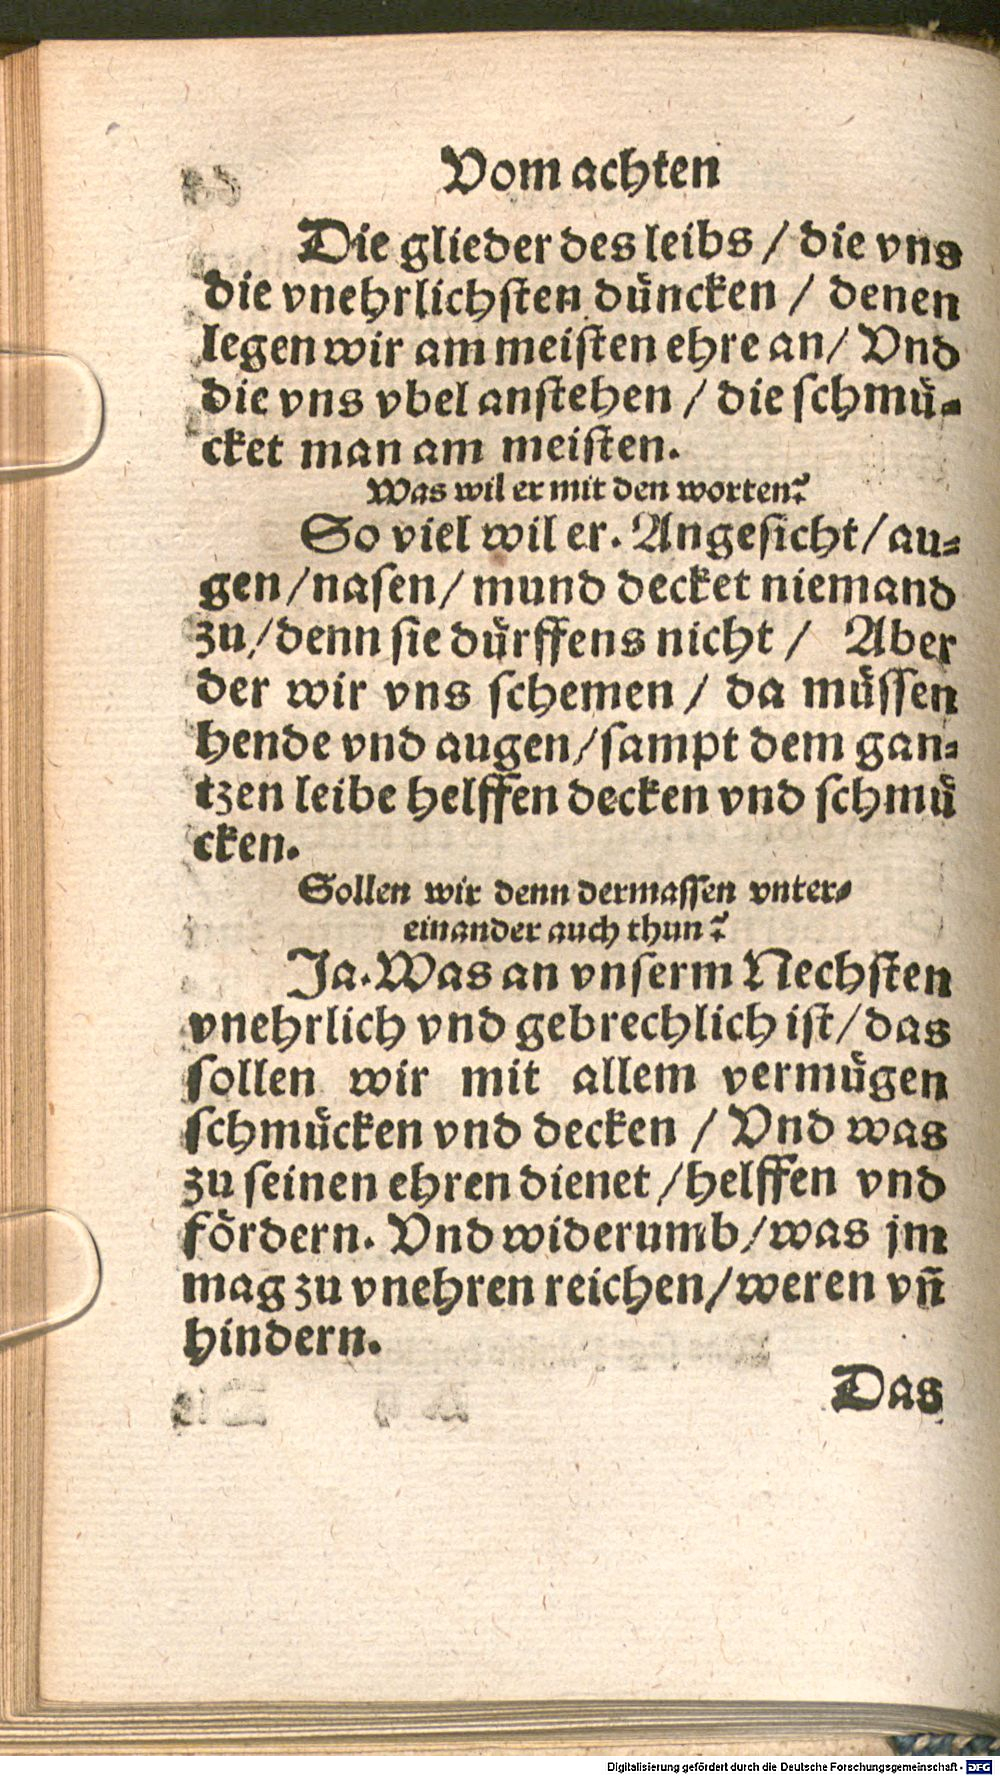 Vom achten
Die glieder des leibs / die vns
die vnehrlichsten duͤncken / denen
legen wir am meisten ehre an / Vnd
die vns vbel anstehen / die schmuͤ-
cket man am meisten.
Was wil er mit den worten?
So viel wil er. Angesicht / au-
gen / nasen / mund decket niemand
zu / denn sie duͤrffens nicht / Aber
der wir vns schemen / da muͤssen
hende vnd augen / sampt dem gan-
tzen leibe helffen decken vnd schmuͤ
cken.
Sollen wir denn dermassen vnter-
einander auch thun?
Ja. Was an vnserm Nechsten
vnehrlich vnd gebrechlich ist / das
sollen wir mit allem vermuͤgen
schmuͤcken vnd decken / Vnd was
zu seinen ehren dienet / helffen vnd
foͤrdern. Vnd widerumb / was jm
mag zu vnehren reichen / weren vñ
hindern.
Das
Digitalisierung gefördert durch die Deutsche Forschungsgemeinschaft - DFG